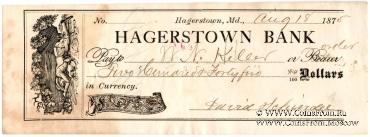 No. Hagerstown, Md., Aug 18 1875
HAGERSTOWN BANK
Pay to W. H. Keller or Bearer order
Five Hundred & Forty five Dollars
100
in Currency.
David
© www.CoinsForum.RU